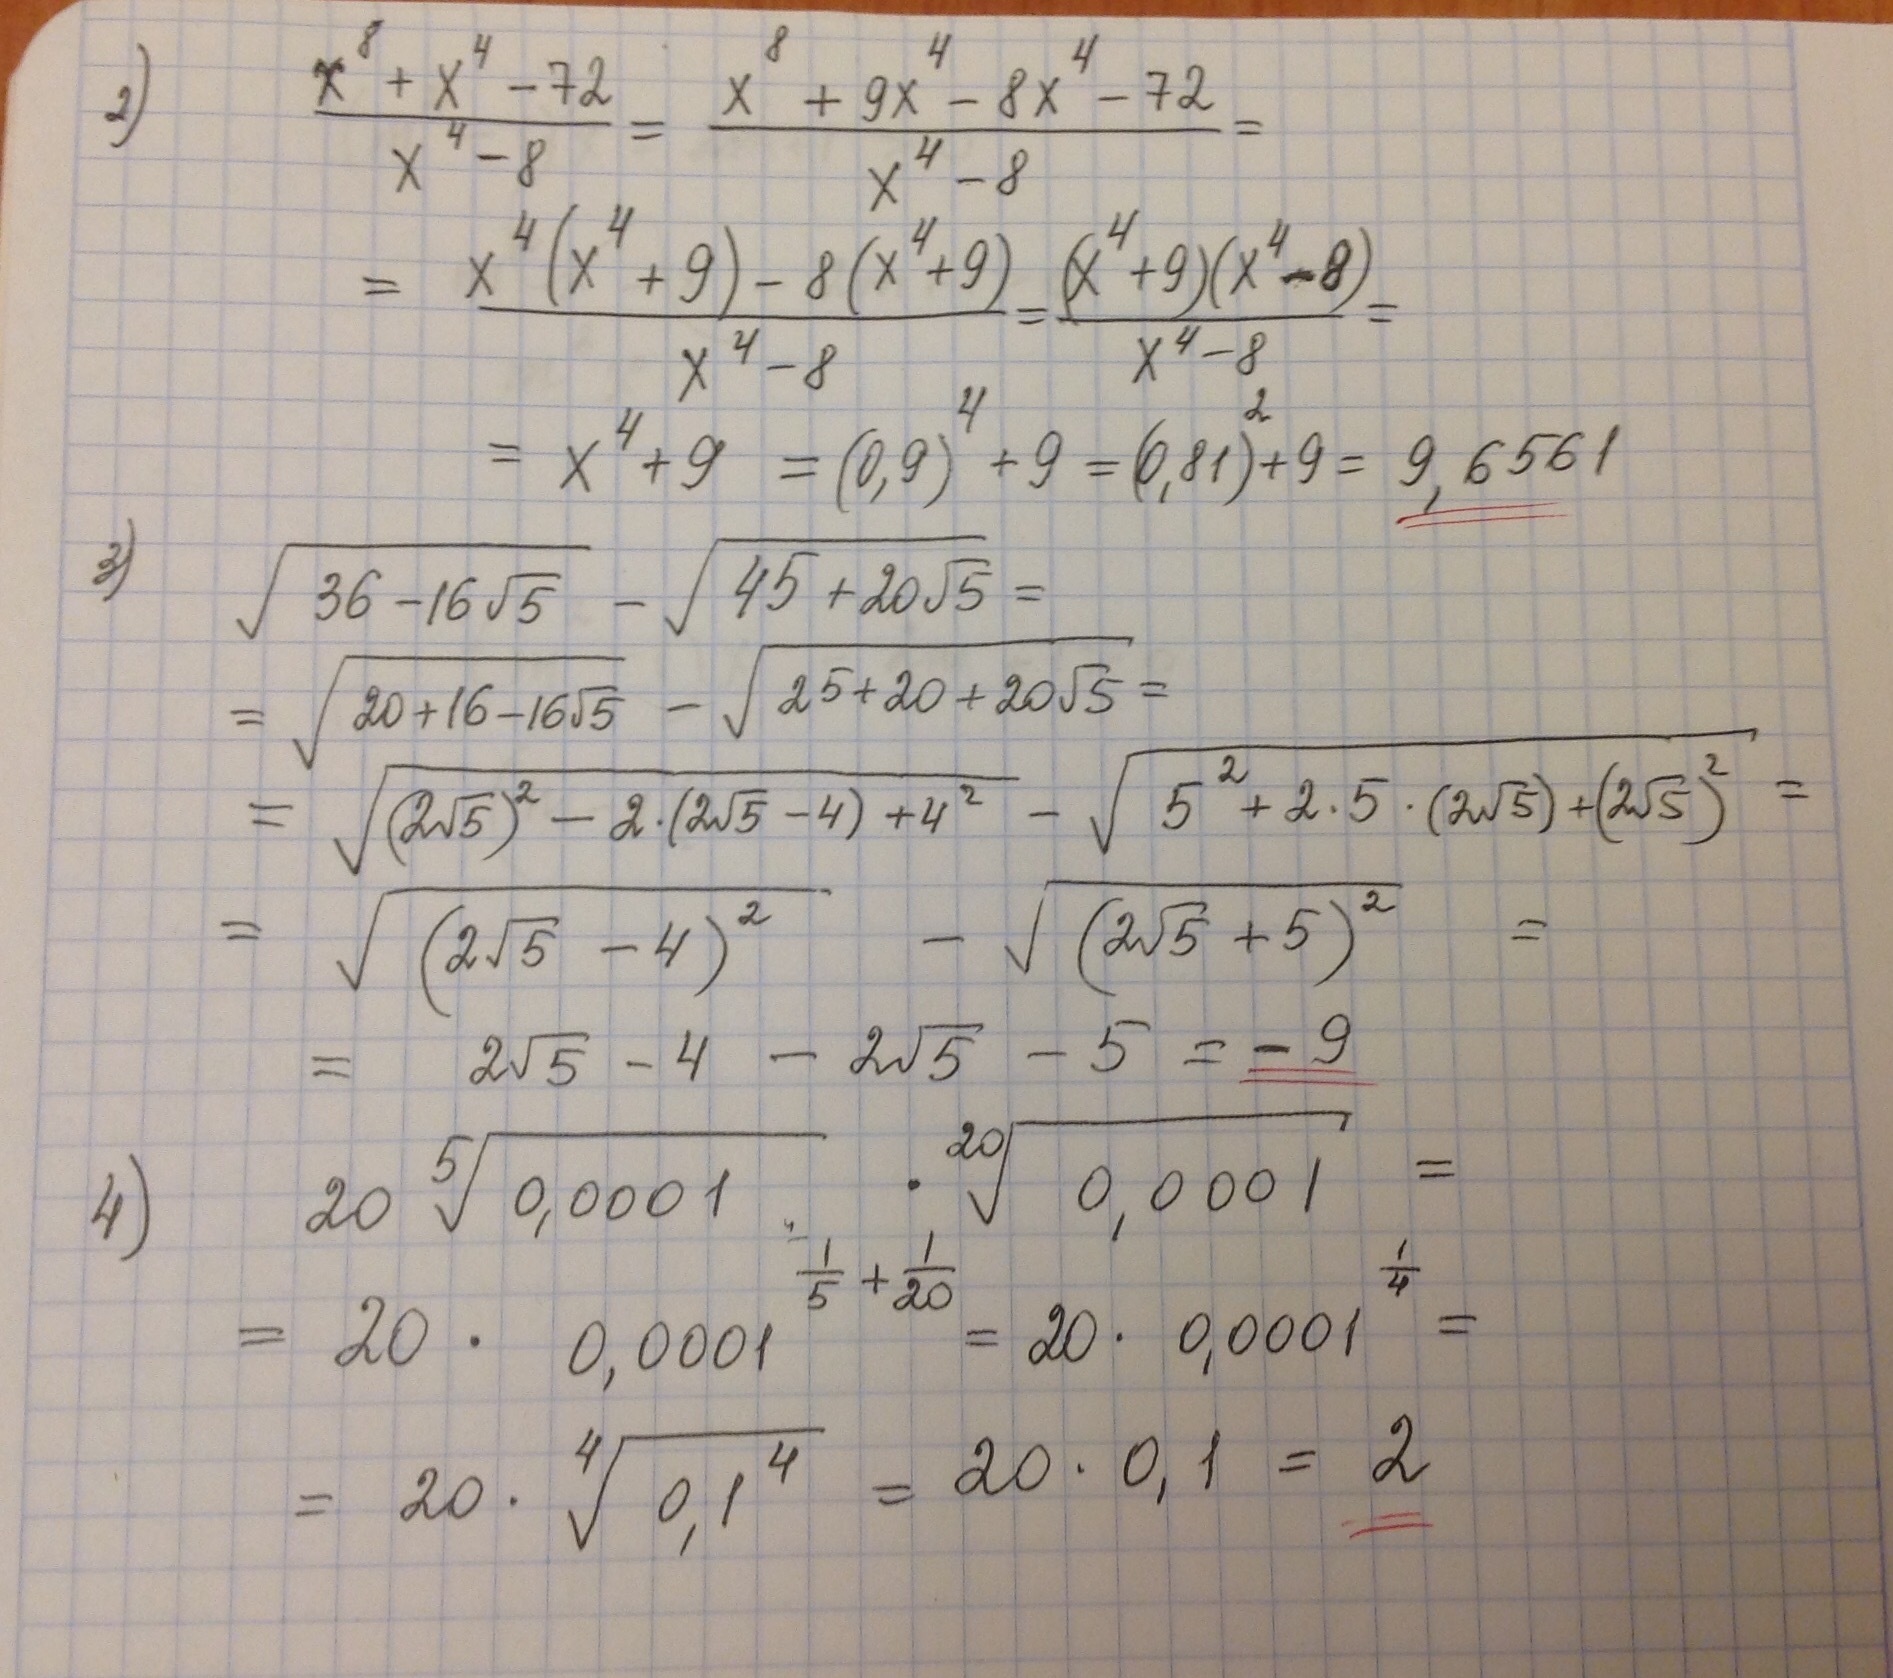 2) (x⁸ + x⁴ − 72)/(x⁴ − 8) = (x⁸ + 9x⁴ − 8x⁴ − 72)/(x⁴ − 8) =
= (x⁴(x⁴ + 9) − 8(x⁴ + 9))/(x⁴ − 8) = ((x⁴ + 9)(x⁴ − 8))/(x⁴ − 8) =
= x⁴ + 9 = (0,9)⁴ + 9 = (0,81)² + 9 = 9,6561
3) √(36 − 16√5) − √(45 + 20√5) =
= √(20 + 16 − 16√5) − √(25 + 20 + 20√5) =
= √((2√5)² − 2·(2√5 − 4) + 4²) − √(5² + 2·5·(2√5) + (2√5)²) =
= √((2√5 − 4)²) − √((2√5 + 5)²) =
= 2√5 − 4 − 2√5 − 5 = −9
4) 20 ⁵√(0,0001) · ²⁰√(0,0001) =
= 20 · 0,0001^(1/5 + 1/20) = 20 · 0,0001^(1/4) =
= 20 · ⁴√(0,1⁴) = 20 · 0,1 = 2